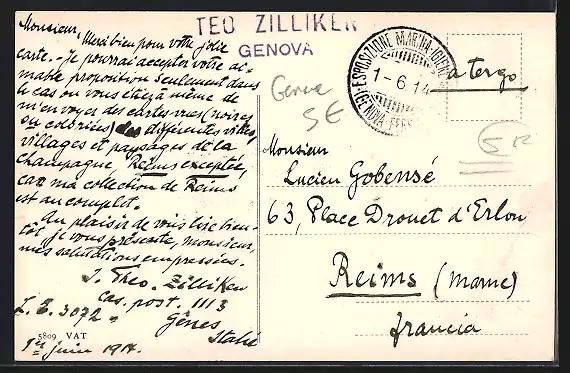 Monsieur,
Merci bien pour votre jolie
carte. Je pourrai accepter votre ai-
mable proposition seulement dans
le cas ou vous étiez à même de
m'envoyer des cartes vues (noires
ou coloriées) des différentes villes,
villages et paysages de la
Champagne Reims exceptée,
car ma collection de Reims
est au complet.
Au plaisir de vous lire bien-
tôt, je vous présente, monsieur,
mes salutations empressées.
J. Theo. Zilliken
cas. post. 1113
L. E. 3072
Gênes
Italie
5809 VAT
1er juin 1914.
TEO ZILLIKEN
GENOVA
Genova
SE
ESPOSIZIONE MARINA-IGIENE
1-6.14
(GENOVA
a tergo
ER
Monsieur
Lucien Gobensé
63, Place Drouet d'Erlon
Reims (Marne)
francia